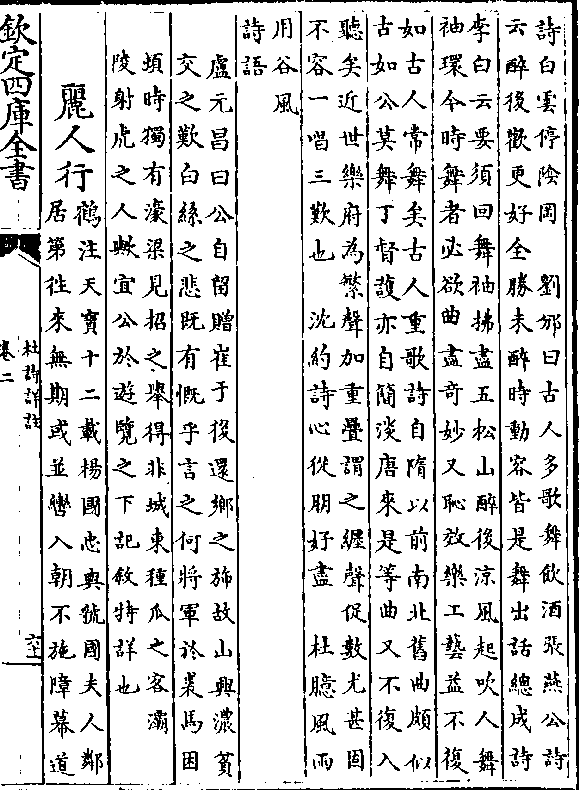 詩白雲停陰岡　劉邠曰古人多歌舞飲酒張燕公詩
云醉後歡更好全勝未醉時動容皆是舞出話總成詩
李白云要須回舞袖拂盡五松山醉後涼風起吹人舞
袖環今時舞者必欲曲盡奇妙又恥效樂工藝益不復
如古人常舞矣古人重歌詩自隋以前南北舊曲頗似
古如公莫舞丁督護亦自簡淡唐來是等曲又不復入
聽矣近世樂府為繁聲加重疊謂之纏聲促數尤甚固
不容一唱三歎也　沈約詩心從朋好盡　杜臆風雨
用谷風
詩語
盧元昌曰公自留贈崔于後還鄉之旆故山興濃貧
交之歎白絲之悲既有慨乎言之何將軍於裘馬困
頓時獨有濠梁見招之舉得非城東種瓜之客灞
陵射虎之人歟宜公於遊覽之下記敘特詳也
麗人行
鶴注天寶十二載楊國忠與虢國夫人鄰
居第往來無期或並轡入朝不施障幕道
欽定四庫全書
杜詩詳註
卷二
六十